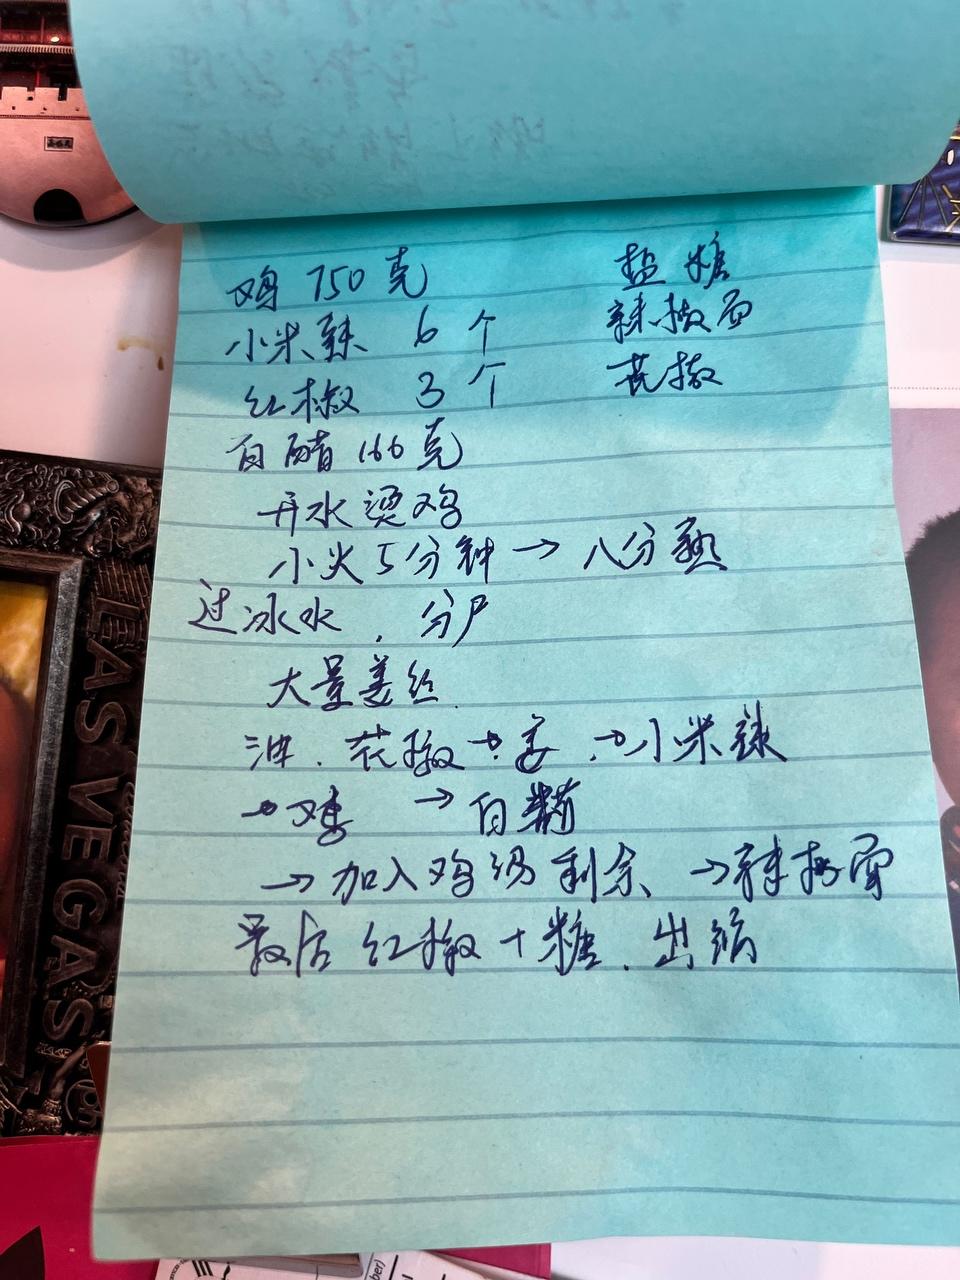 鸡 750 克
小米辣 6 个
红椒 3 个
白醋 166 克
盐 糖
辣椒面
花椒
开水烫鸡
小火5分钟 → 八分熟
过冰水, 分尸
大量姜丝.
油. 花椒 → 姜 → 小米辣
→ 鸡 → 白醋
→ 加入鸡汤剩余 → 辣椒面
最后 红椒 + 糖. 出锅
LAS VEGAS